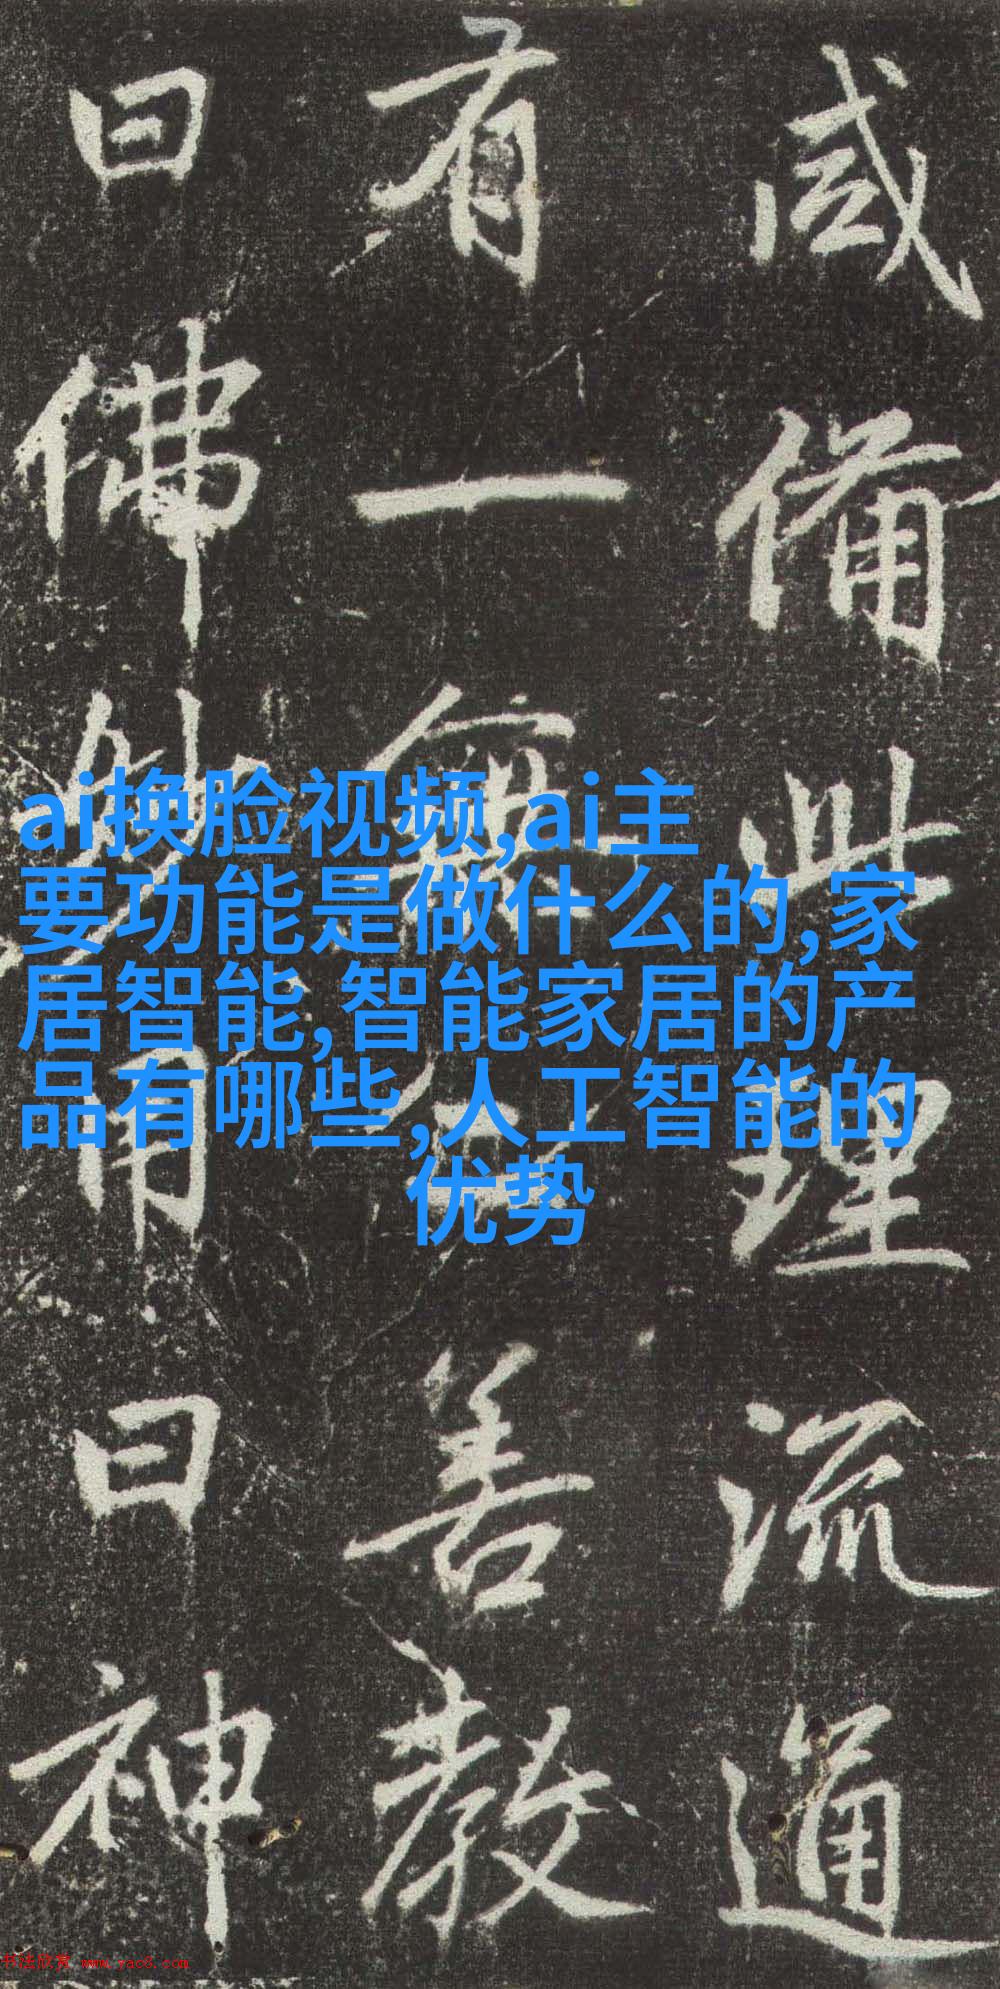 咸備此理流通
有一無善教
曰佛用曰神
ai换脸视频,ai主
要功能是做什么的,家
居智能,智能家居的产
品有哪些,人工智能的
优势
书法欣赏 www.yac8.com